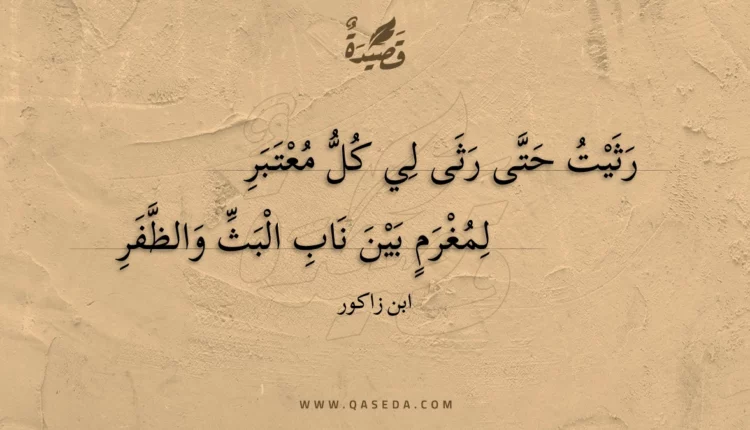 قَصِيْدَةٌ
رَثَيْتُ حَتَّى رَثَى لِي كُلُّ مُعْتَبَرِ
لِمُغْرَمٍ بَيْنَ نَابِ الْبَثِّ وَالظَّفَرِ
ابن زاكور
WWW.QASEDA.COM